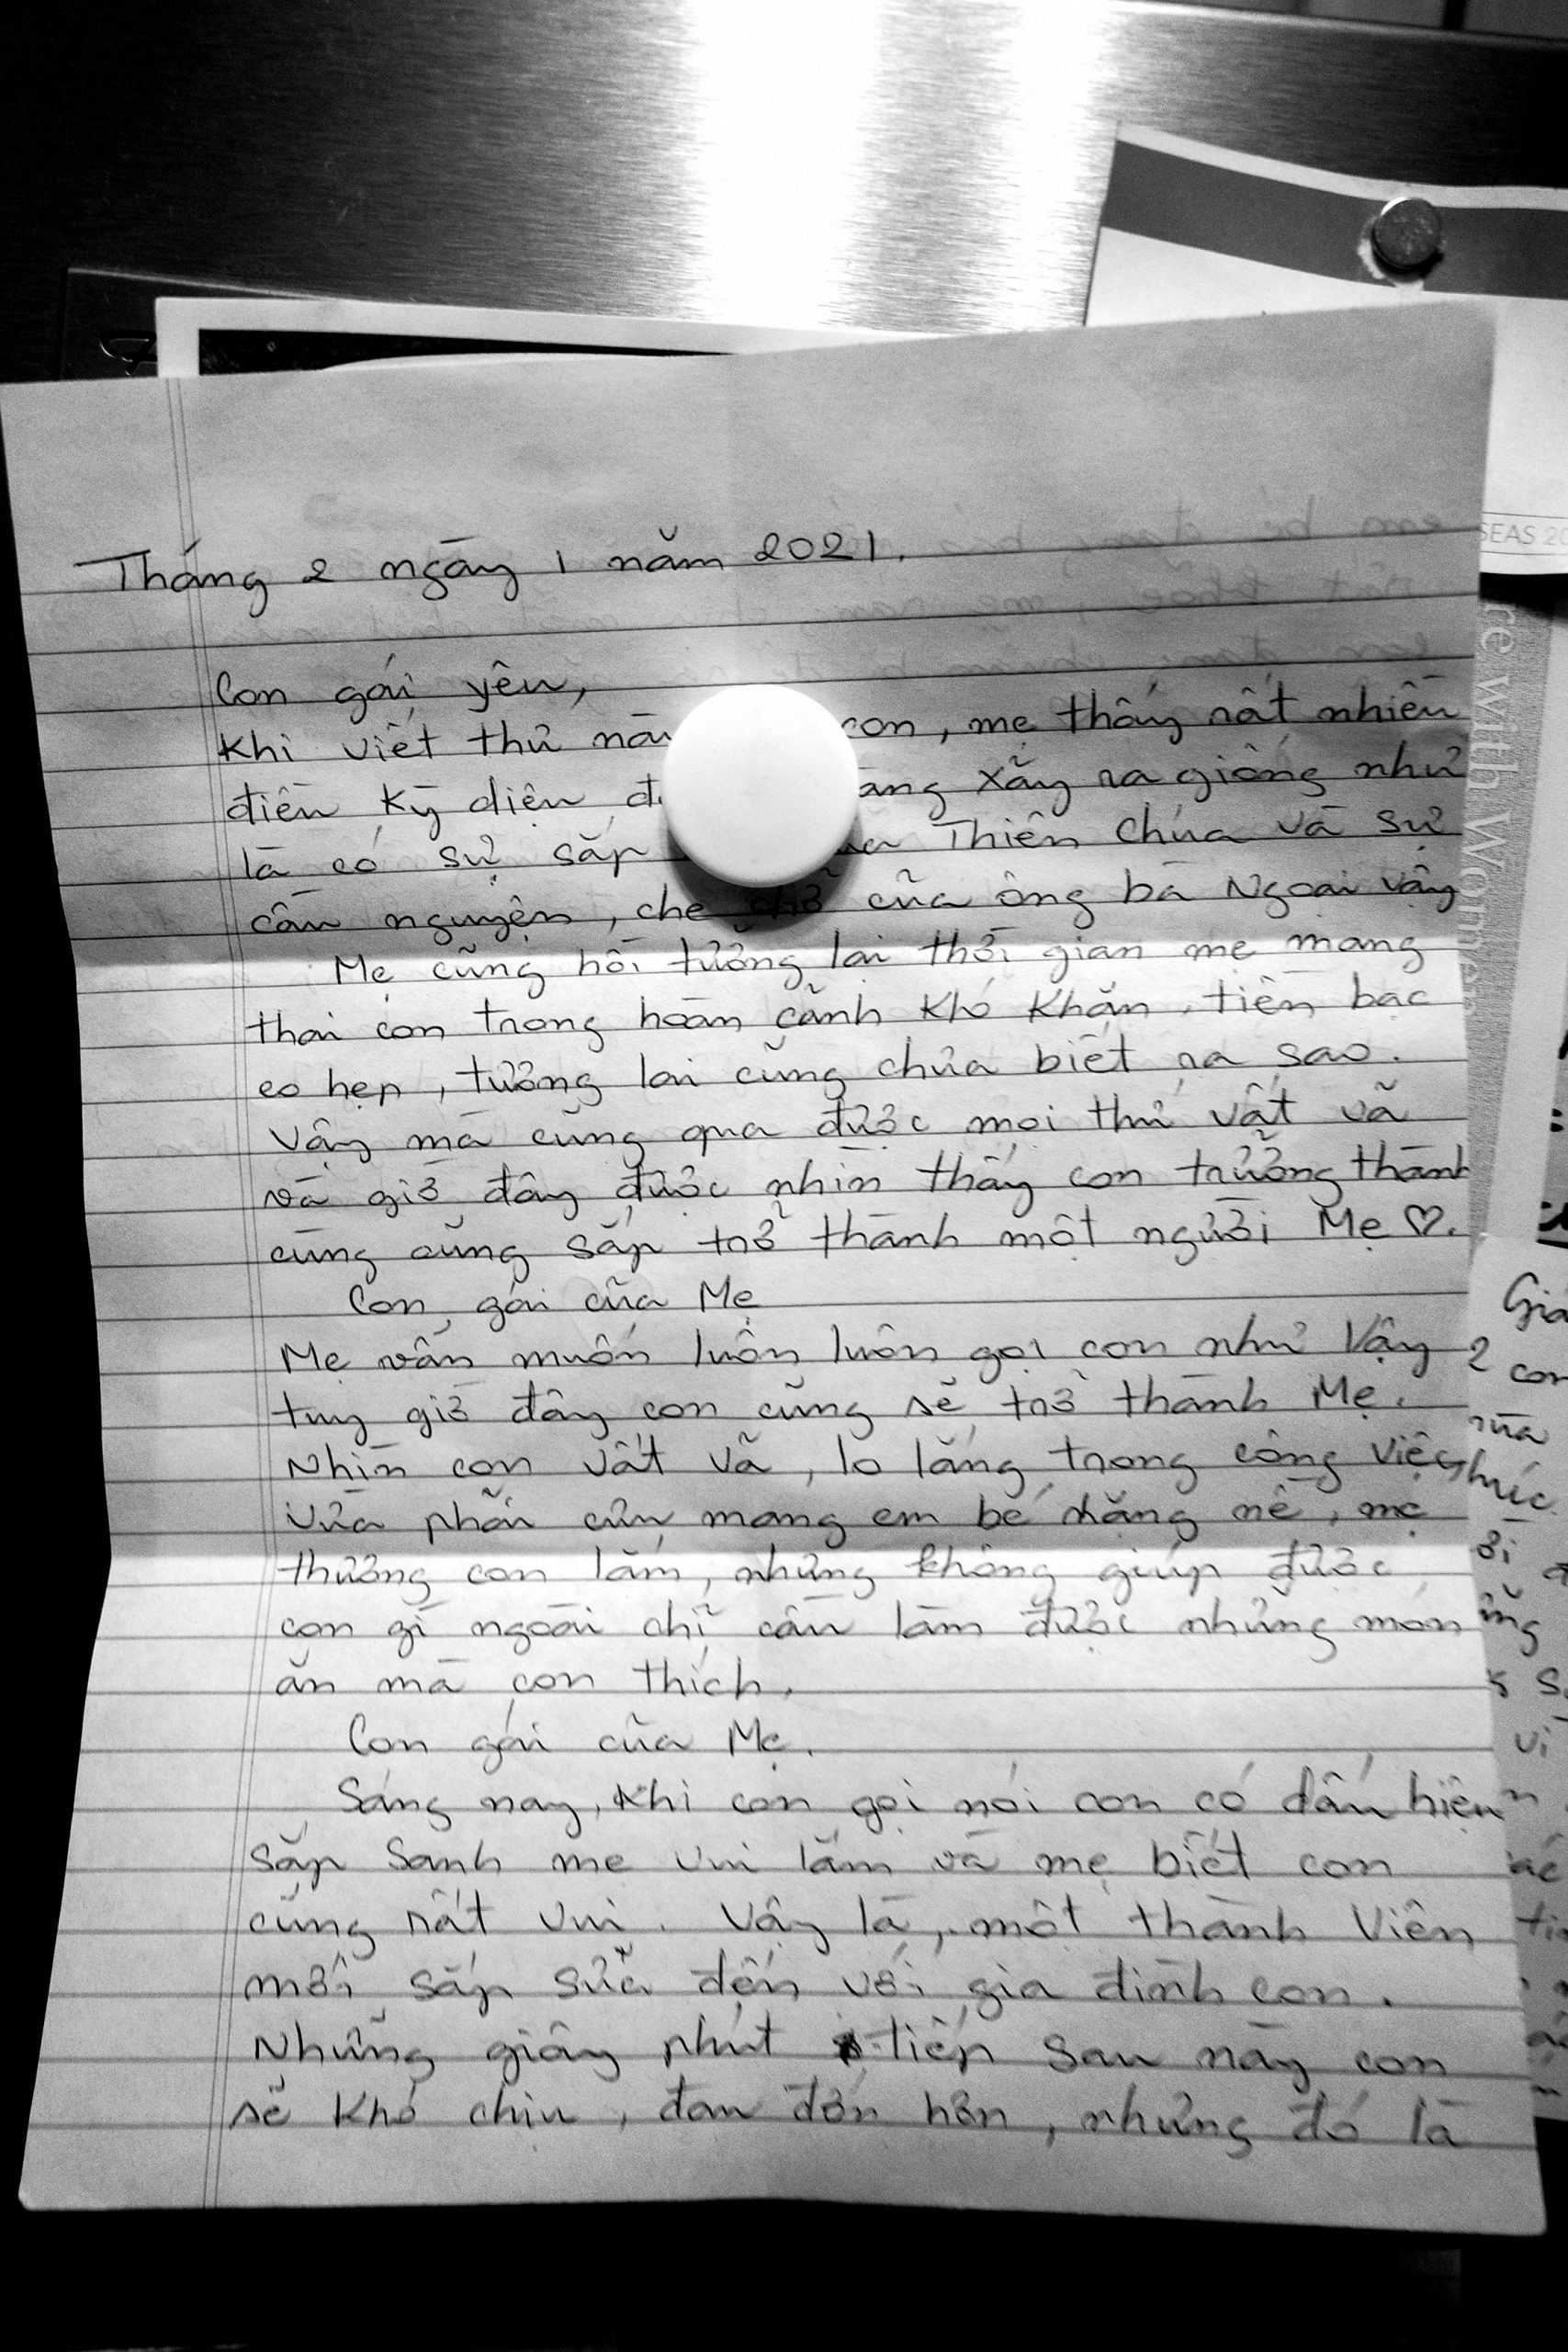 Tháng 2 ngày 1 năm 2021.
Con gái yêu,
Khi viết thư con, mẹ thấy rất nhiều
điều kỳ diệu xãy ra giống như
là có sự sắp Thiên Chúa và sự
cầu nguyện, che chở cũa ông bà Ngoại vậy
Mẹ cũng hồi tưởng lại thời gian mẹ mang
thai con trong hoàn cãnh khó khăn, tiền bạc
eo hẹp, tương lai cũng chưa biết ra sao.
Vậy mà cũng qua được mọi thứ vất vã
và giờ đây được nhìn thấy con trưỡng thành
cũng sắp trỡ thành một người Mẹ ♡.
Con gái cũa Mẹ
Mẹ vẫn muốn luôn luôn gọi con như vậy
tuy giờ đây con cũng sẽ trỡ thành Mẹ.
Nhìn con vất vã, lo lắng trong công việc,
vừa phãi cưu mang em bé nặng nề, mẹ
thương con lắm, nhưng không giúp được
con gì ngoài chĩ cần làm được những món
ăn mà con thích.
Con gái cũa Mẹ.
Sáng nay, khi con gọi nói con có dấu hiệu
sắp sanh mẹ vui lắm và mẹ biết con
cũng rất vui. Vậy là, một thành viên
mới sắp sữa đến với gia đình con.
Những giây phút tiếp sau này con
sẽ khó chịu, đau đớn hơn, nhưng đó là
SEAS 20
re with Women
2 con